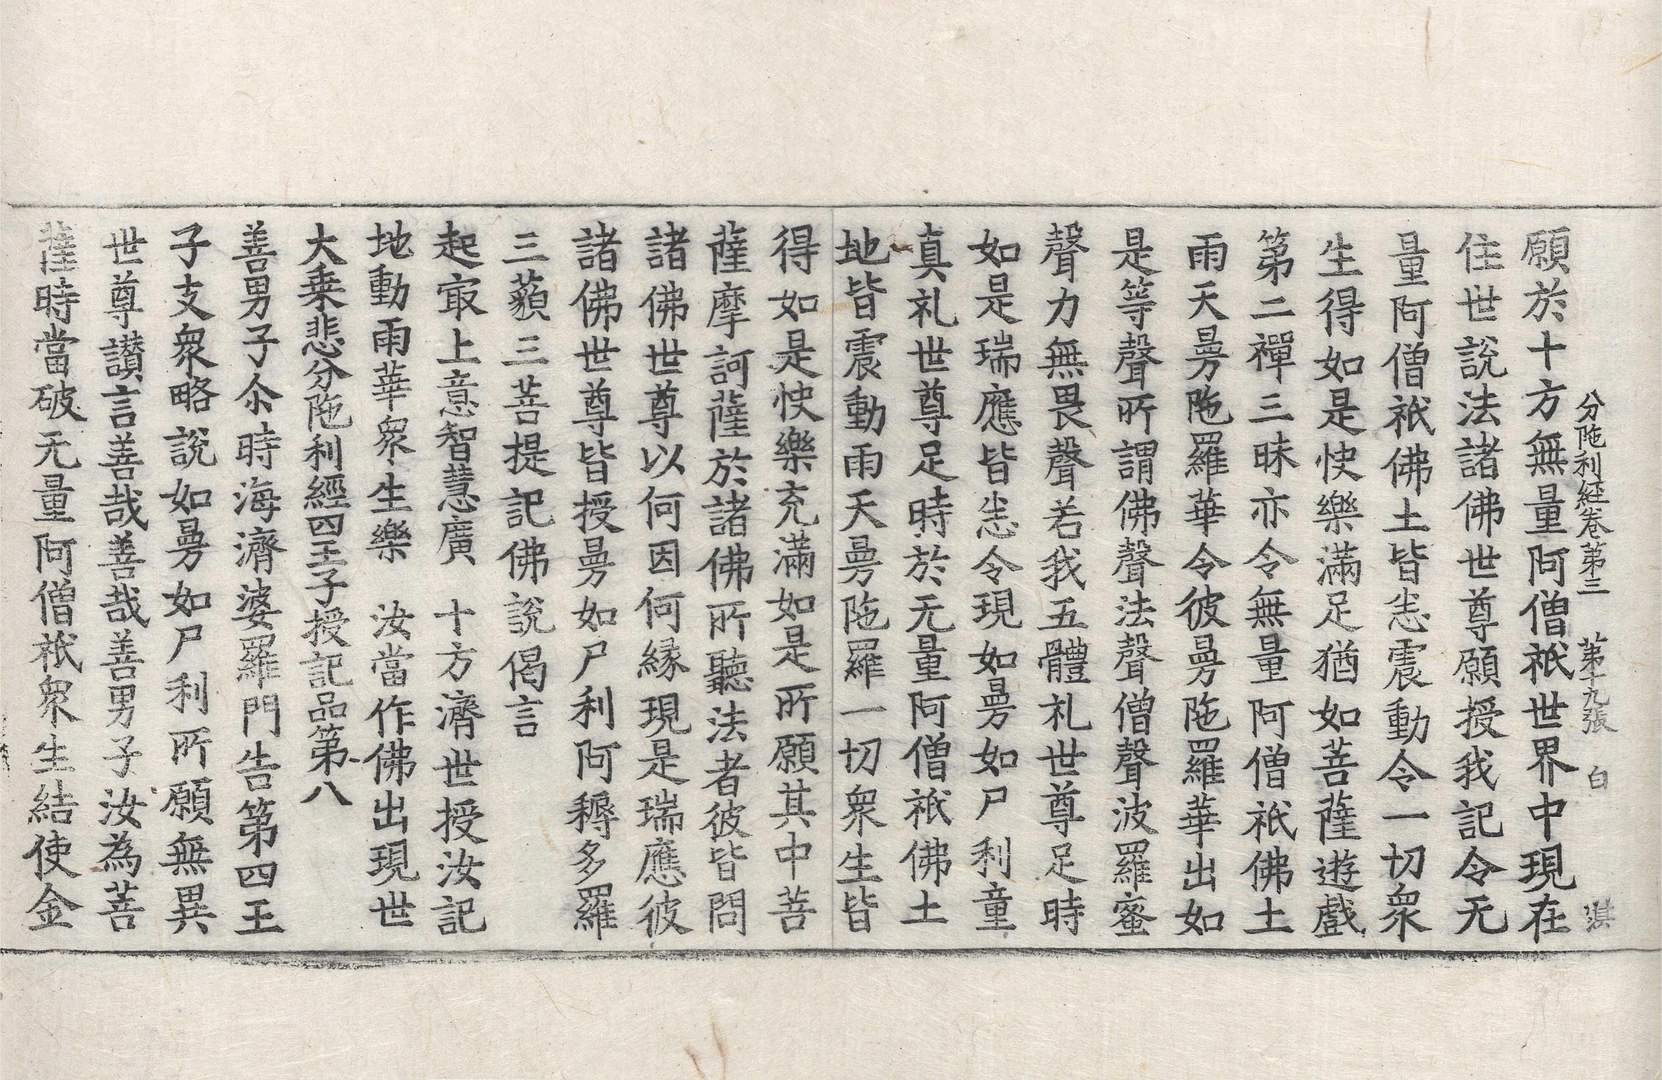 分陁利經卷第三 第十九張 白
願於十方無量阿僧祇世界中現在
住世說法諸佛世尊願授我記令无
量阿僧祇佛土皆悉震動令一切衆
生得如是快樂滿足猶如菩薩遊戲
第二禪三昧亦令無量阿僧祇佛土
雨天曼陁羅華令彼曼陁羅華出如
是等聲所謂佛聲法聲僧聲波羅蜜
聲力無畏聲若我五體礼世尊足時
如是瑞應皆悉令現如曼如尸利童
真礼世尊足時於无量阿僧祇佛土
地皆震動雨天曼陁羅一切衆生皆
得如是快樂充滿如是所願其中菩
薩摩訶薩於諸佛所聽法者彼皆問
諸佛世尊以何因何縁現是瑞應彼
諸佛世尊皆授曼如尸利阿耨多羅
三藐三菩提記佛說偈言
起㝡上意智慧廣 十方濟世授汝記
地動雨華衆生樂 汝當作佛出現世
大乗悲分陁利經四王子授記品第八
善男子尒時海濟婆羅門告第四王
子支衆略說如曼如尸利所願無異
世尊讃言善哉善哉善男子汝為菩
薩時當破无量阿僧祇衆生結使金